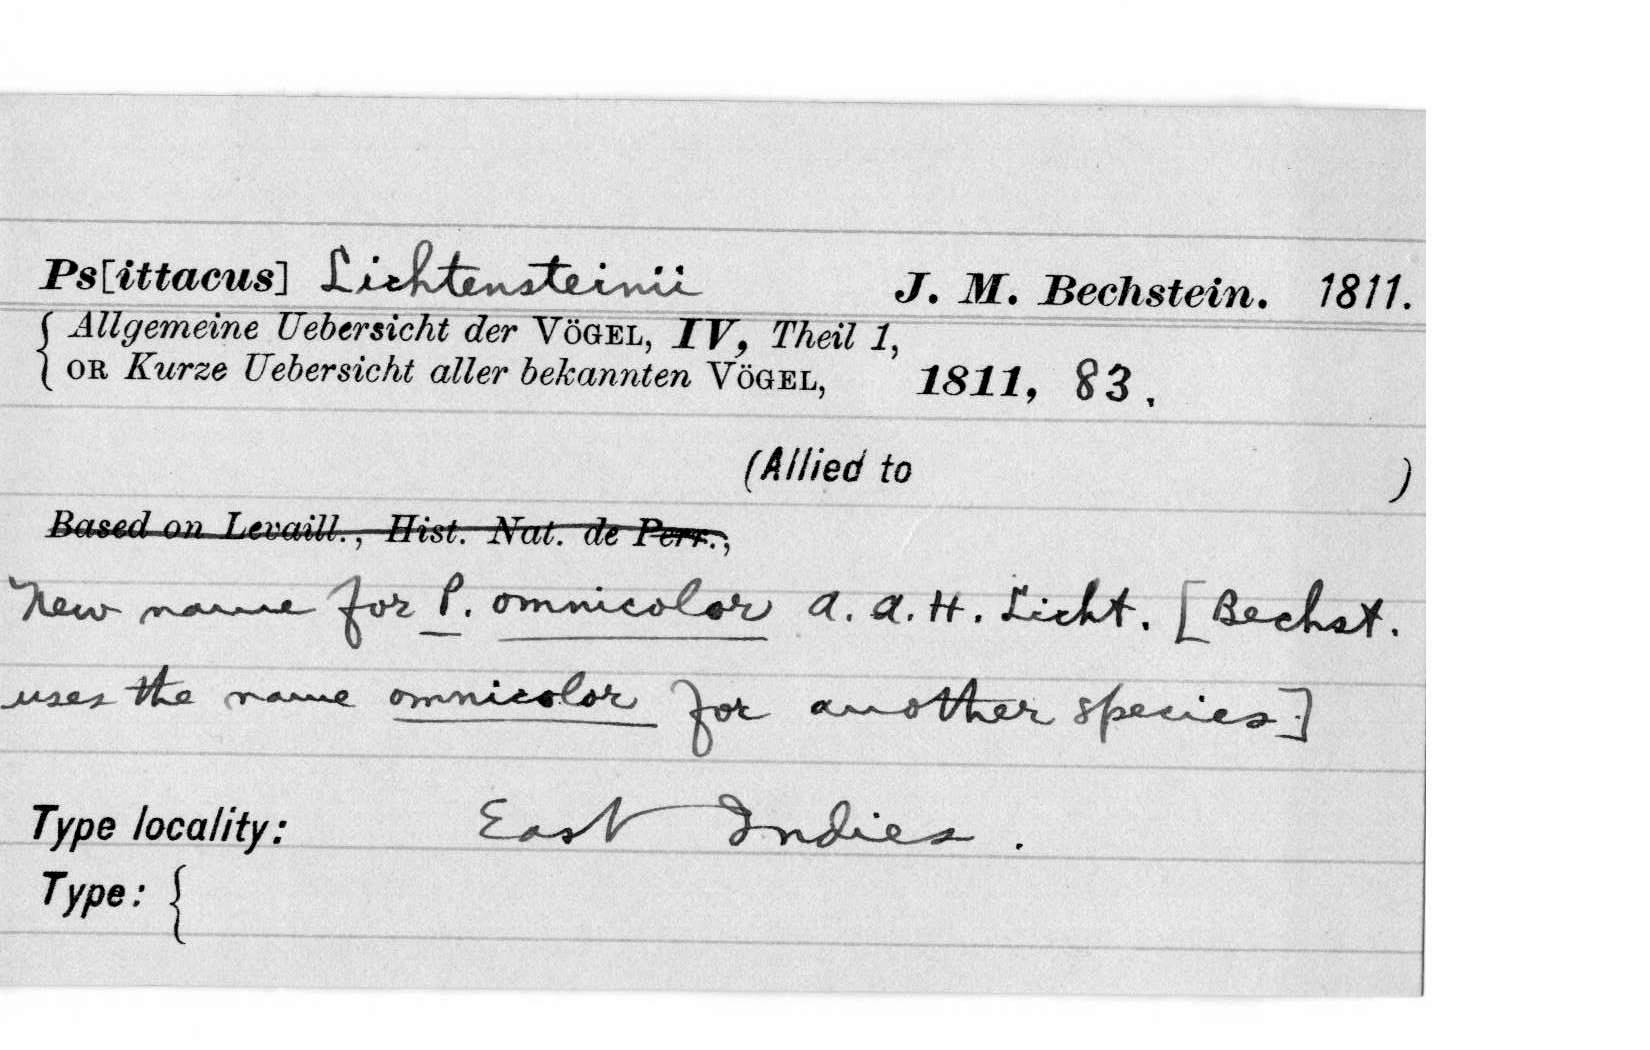 Ps[ittacus] Lichtensteinii J. M. Bechstein. 1811.
{ Allgemeine Uebersicht der VÖGEL, IV, Theil 1,
OR Kurze Uebersicht aller bekannten VÖGEL, 1811, 83.
(Allied to )
Based on Levaill., Hist. Nat. de Perr.,
New name for P. omnicolor A. A. H. Licht. [Bechst.
uses the name omnicolor for another species.]
Type locality: East Indies.
Type: {